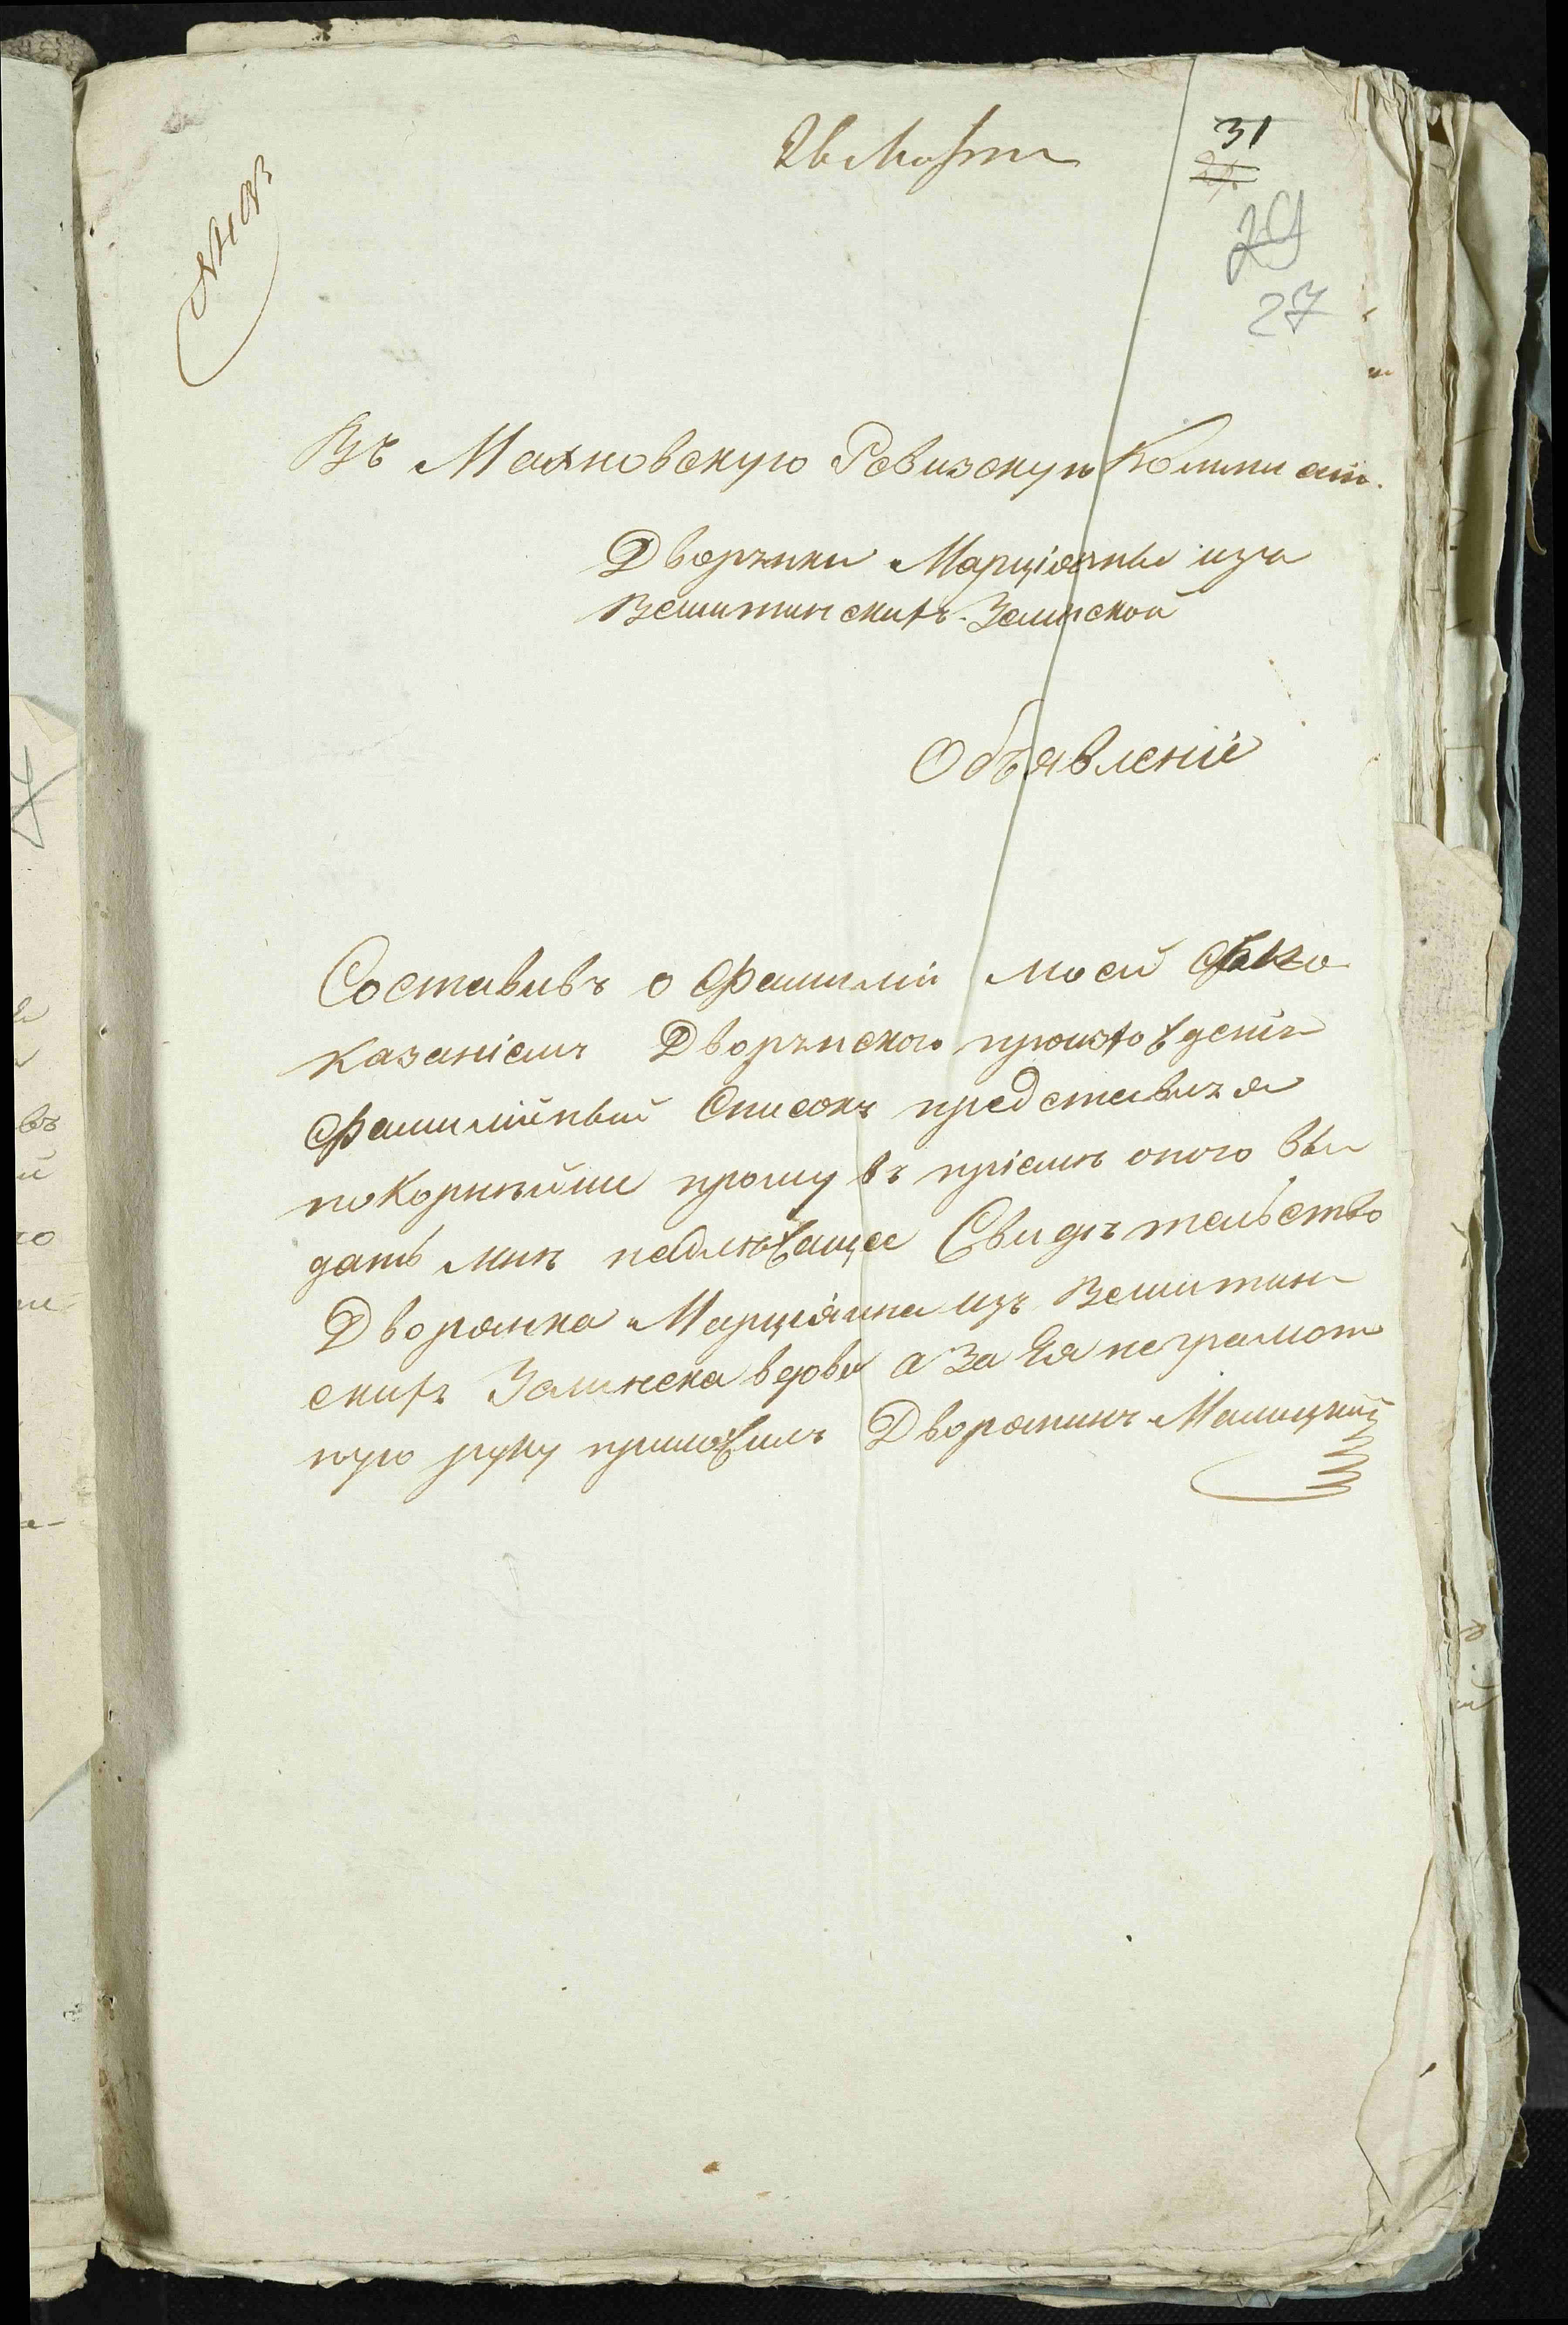 26 Марта
31
29
27
Въ Махновскую Ревизскую Коммисію.
Дворянки Марціянны изъ
Вешитинскихъ Залиской
Объявленіе
Составивъ о Фамиліи моей
казаніемъ Дворянского происхожденія
Фамилійный Списокъ представляя
покорнѣйше прошу въ пріемѣ оного вы
дать мнѣ надлежащее Свидѣтельство
Дворянка Марціянна изъ Вешитин
скихъ Залинска вдова а за Ея неграмот
ную руку приложилъ Дворянинъ Малицкий